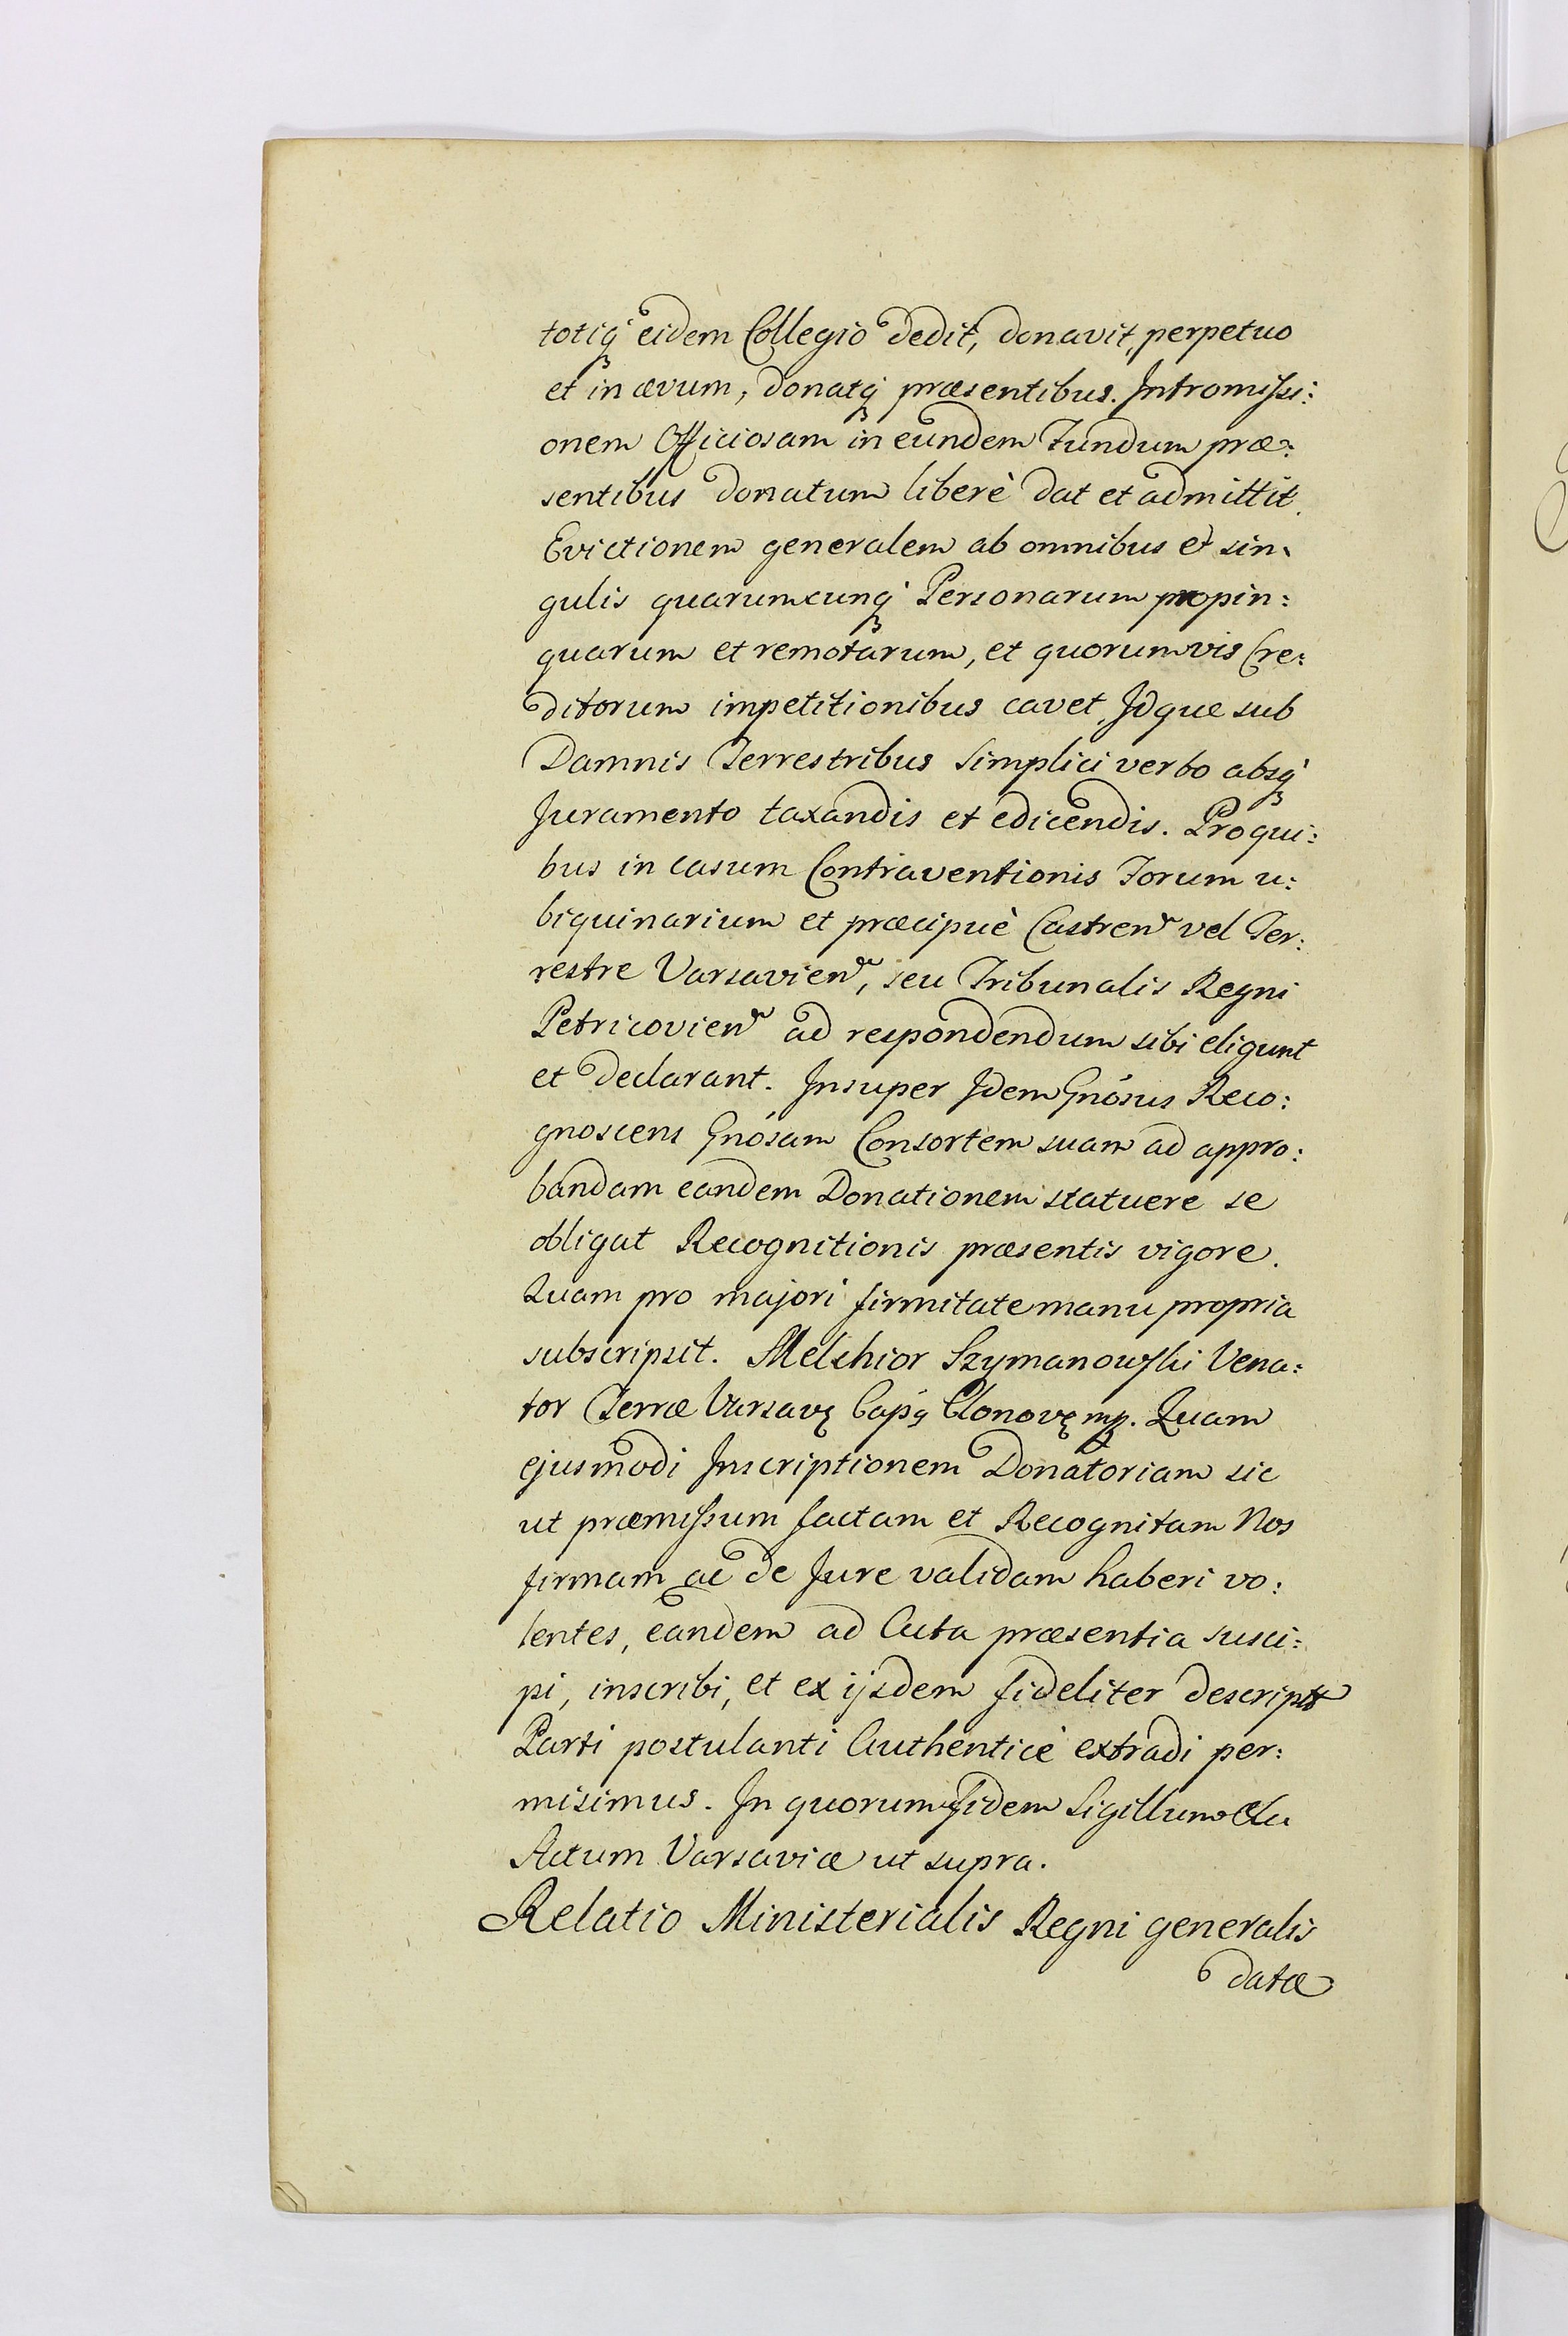 totiq́ʒ eidem Collegio dedit, donavit, perpetuo
et in ævum, donatq́ʒ præsentibus. Intromissi:
onem Officiosam in eundem Fundum præ:
sentibus donatum liberè dat et admittit.
Evictionem generalem ab omnibus et sin:
gulis quarumcunq́ʒ Personarum propin:
quarum et remotarum, et quorumvis Cre:
ditorum impetitionibus cavet, Idque sub
Damnis Terrestribus simplici verbo absq́ʒ
Juramento taxandis et edicendis. Pro qui:
bus in casum Contraventionis Forum u:
biquinarium et præcipuè Castren̄ vel Ter:
restre Varsavien̄, seu Tribunalis Regni
Petricovien̄ ad respondendum sibi eligunt
et declarant. Insuper Idem Gnósus Reco:
gnoscens Gnósam Consortem suam ad appro:
bandam eandem Donationem statuere se
obligat Recognitionis præsentis vigore.
Quam pro majori firmitate manu propria
subscripsit. Melchior Szymanowski Vena:
tor Terræ Varsavę Capꝫ Clonovę mp. Quam
ejusmodi Inscriptionem Donatoriam sic
ut præmissum factam et Recognitam Nos
firmam ac de Jure validam haberi vo:
lentes, eandem ad Acta præsentia susci:
pi, inscribi, et ex ijsdem fideliter descript
Parti postulanti Authenticè extradi per:
misimus. In quorum fidem Sigillum
Actum Varsaviæ ut supra.
Relatio Ministerialis Regni generalis
datæ